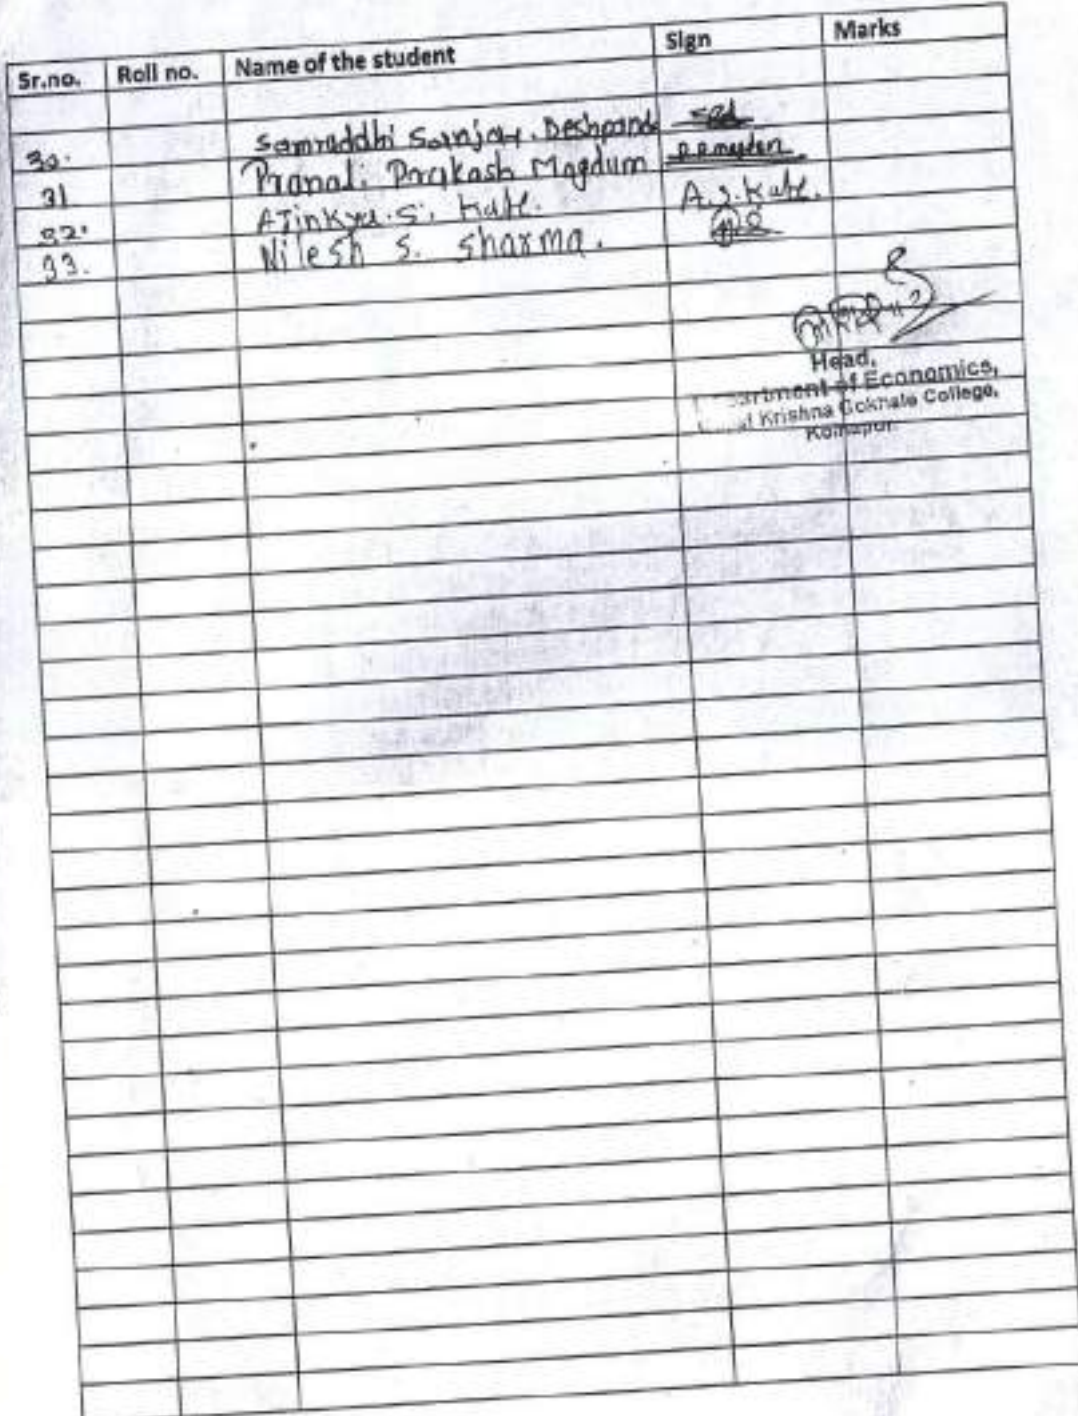 Sr.no. Roll no. Name of the student Sign Marks
30. Samruddhi Sanjay. Deshpande
31 Pranali Prakash Magdum
32. AJinkya.S. Kate. A.S.Kate.
33. Nilesh S. Sharma.
Head,
of Economics,
Krishna Gokhale College,
Kolhapur.